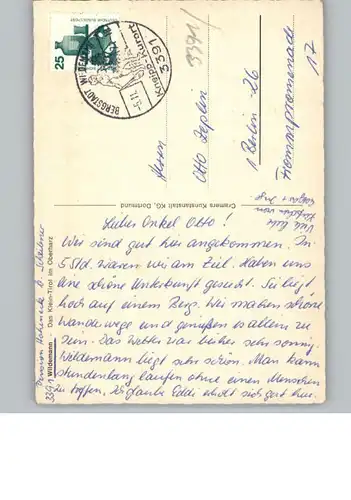 25
DEUTSCHE BUNDESPOST
BERGSTADT WILDEMANN
Kneipp-Kurort
3391
3391/
Herrn
Otto Zeplin
1 Berlin - 26
17
Cramers Kunstanstalt KG, Dortmund
Wildemann - Das Klein-Tirol im Oberharz
3391
Pension
Viele liebe
Lieber Onkel Otto!
Wir sind gut hier angekommen. In
5 Std. waren wir am Ziel. Haben uns
eine schöne Unterkunft gesucht. Sie liegt
hoch auf einem Berg. Wir machen schöne
Wanderwege und genießen es allein zu
sein. Das Wetter war bisher sehr sonnig.
Wildemann liegt sehr schön. Man kann
stundenlang laufen ohne einen Menschen
zu treffen. Ich glaube Eddi erholt sich gut hier.